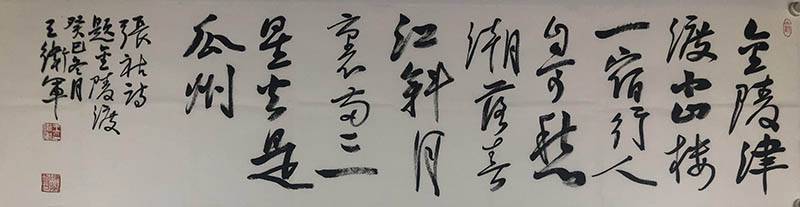 金陵津
渡小山楼
一宿行人
自可愁
潮落夜
江斜月
裏兩三
星火是
瓜州
張祜詩
題金陵渡
癸巳冬月
王衛軍